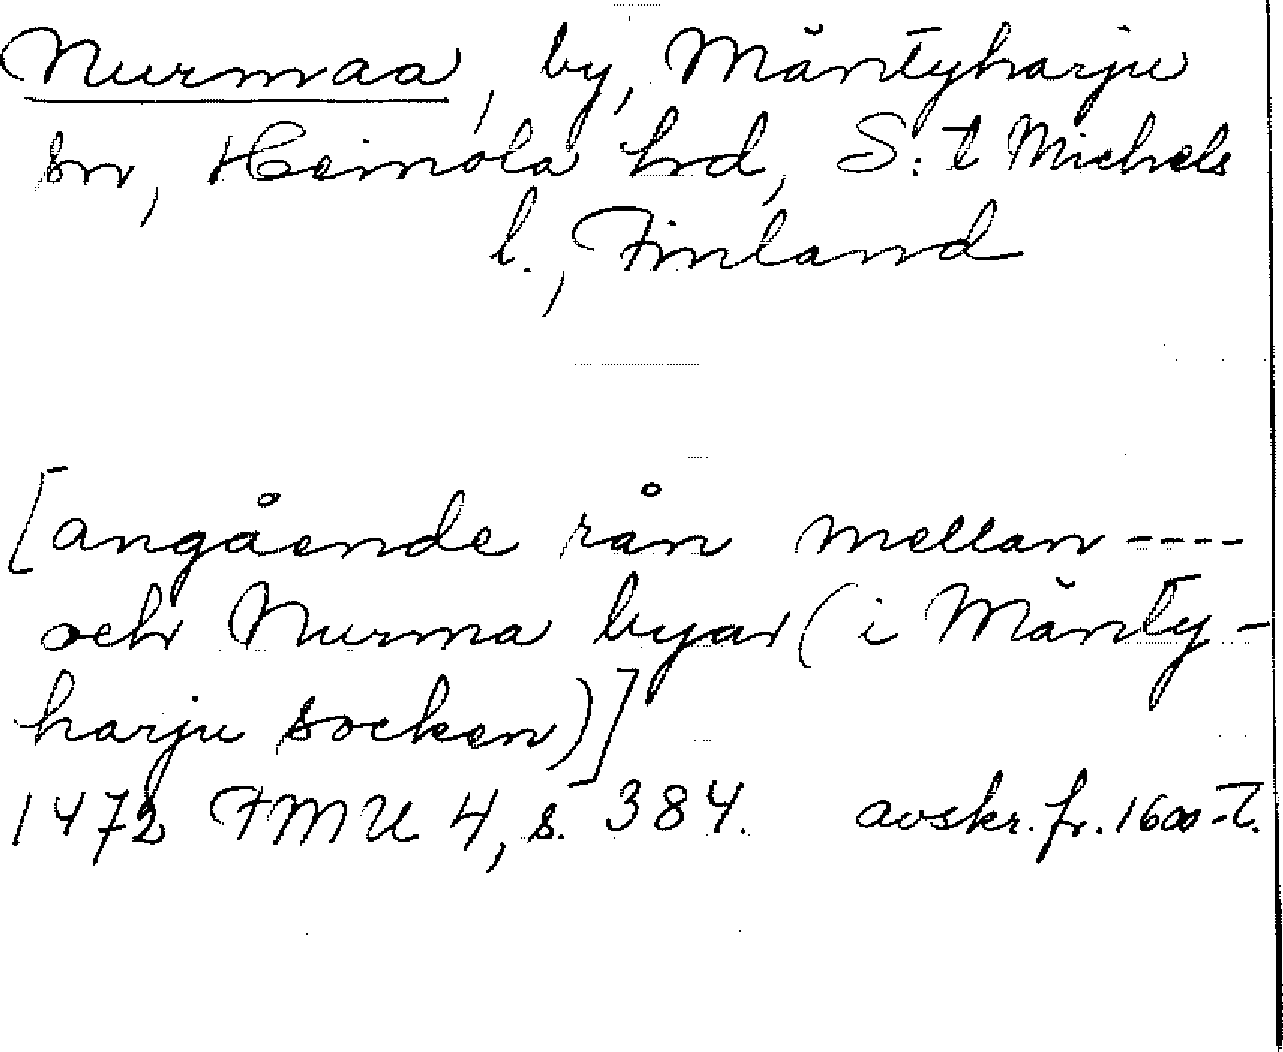 Nurmaa, by, Mäntyharju
sn, Heinola hrd, S:t Michels
l., Finland
[angående rån mellan ----
och Nurma byar (i Mänty-
harju socken)]
1472 FMU 4, s. 384. avskr. fr. 1600-t.